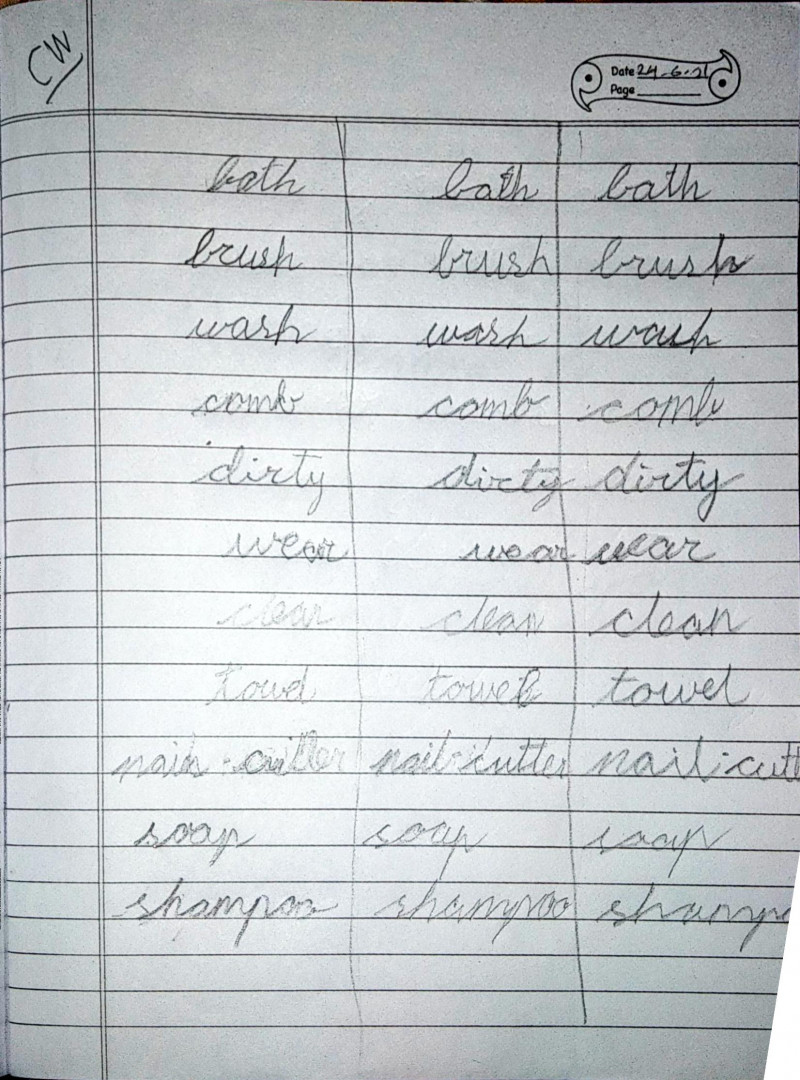 CW
Date 24-6-21
Page
bath bath bath
brush brush brush
wash wash wash
comb comb comb
dirty dirty dirty
wear wear wear
clean clean clean
towel towel towel
nail-cutter nail-cutter nail-cutt
soap soap soap
shampoo shampoo shampo